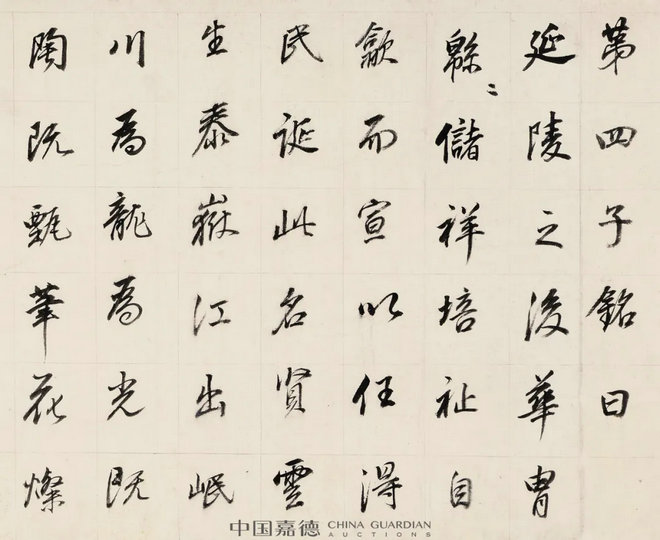 第四子銘曰
延陵之後華胄
緜〻儲祥培祉自
歙而宣以任得
民誕此名賢雲
生泰嶽江出岷
川為龍為光既
陶既甄筆花燦
中国嘉德 CHINA GUARDIAN AUCTIONS